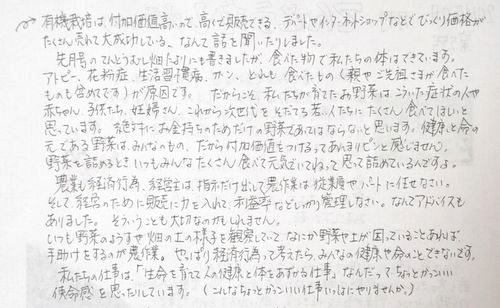 有機栽培は、付加価値高いので、高くて販売できる、デパートやインターネットショップなどでびっくり価格が
たくさん売れて大成功している、なんて話を聞いたりしました。
先月号のてんとうむし畑だよりにも書きましたが、食べた物で私たちの体はできています。
アトピー、花粉症、生活習慣病、ガン、どれも食べたもの(親やご先祖さまが食べた
ものも含めてです)が原因です。だからこそ、私たちが育てたお野菜は、こういった症状の人や
赤ちゃん、子供たち、妊婦さん、これから次世代をそだてる若い人たちにたくさん食べてほしいと
思っています。絶対にお金持ちのためだけの野菜であってはならないと思います。健康と命の
元である野菜は、みんなのもの、だから付加価値をつけるってあんまりピンと感じません。
野菜を詰めるときいつもみんなたくさん食べて元気でいてねって思って詰めているんですよ。
農業も経済行為、経営主は、指示だけ出して農作業は従業員やパートに任せなさい。
そして経営のために販売に力を入れて利益率などしっかり管理しなさい。なんてアドバイスも
ありました。そういうことも大切なのかもしれません。
いつも野菜のようすや畑の土の様子を観察していてなにか野菜や土が困っていることあれば、
手助けをするのが農作業。やっぱり経済行為って考えたら、みんなの健康や命のことできないです。
私たちの仕事は、「生命を育てて人の健康と体をあずかる仕事。なんだってちょっとかっこいい
使命感を思ったりしています。(こんなちょっとかっこいい仕事いっぱにやりませんか。)